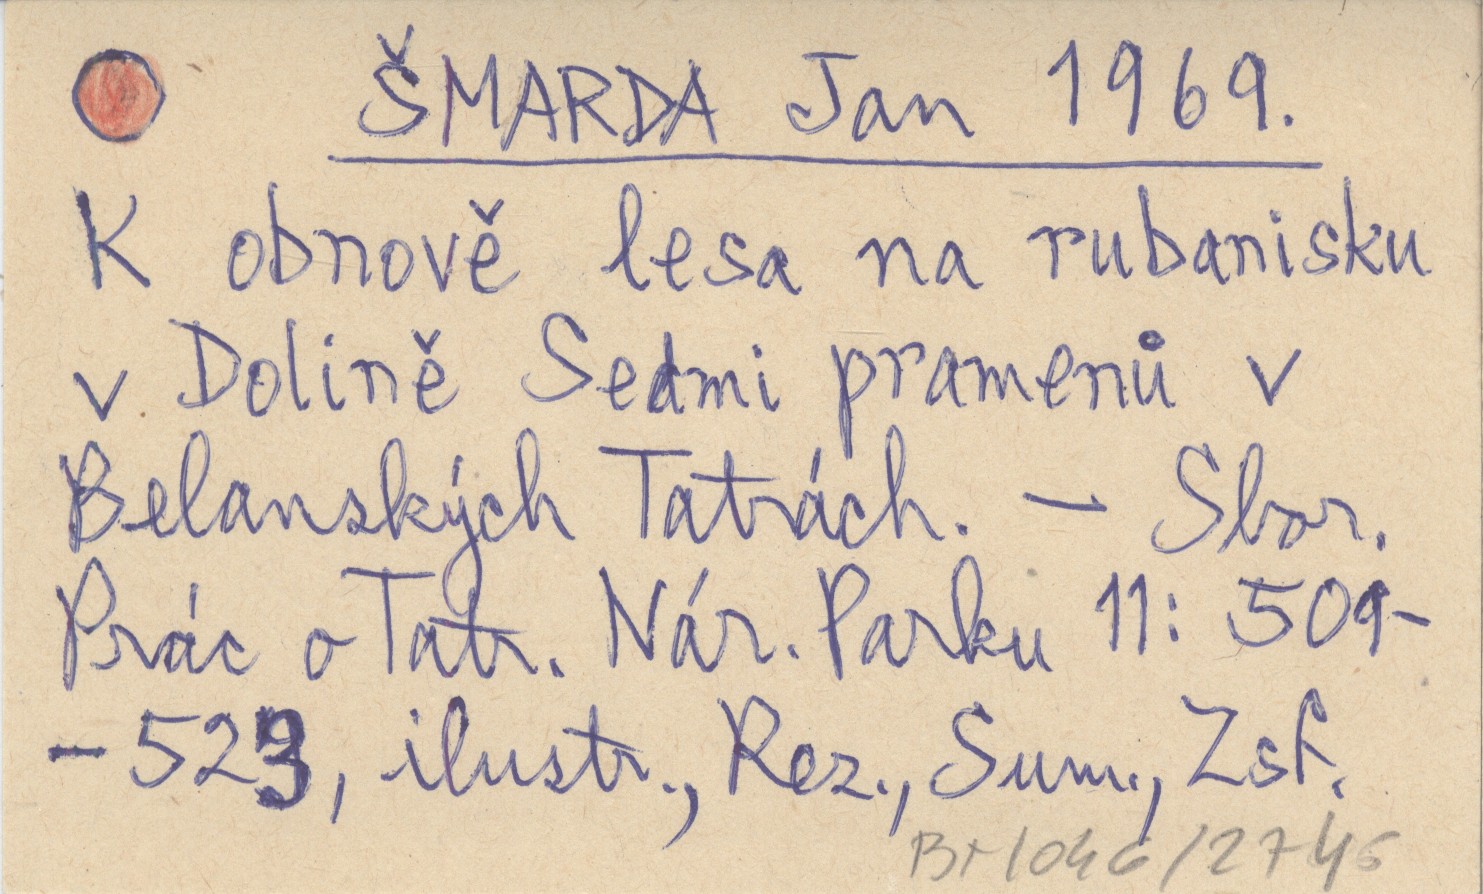 ŠMARDA Jan 1969.
K obnově lesa na rubanisku
v Dolině Sedmi pramenů v
Belanských Tatrách. – Sbor.
Prác o Tatr. Nár. Parku 11: 509-
-523, ilustr., Rez., Sum., Zsf.